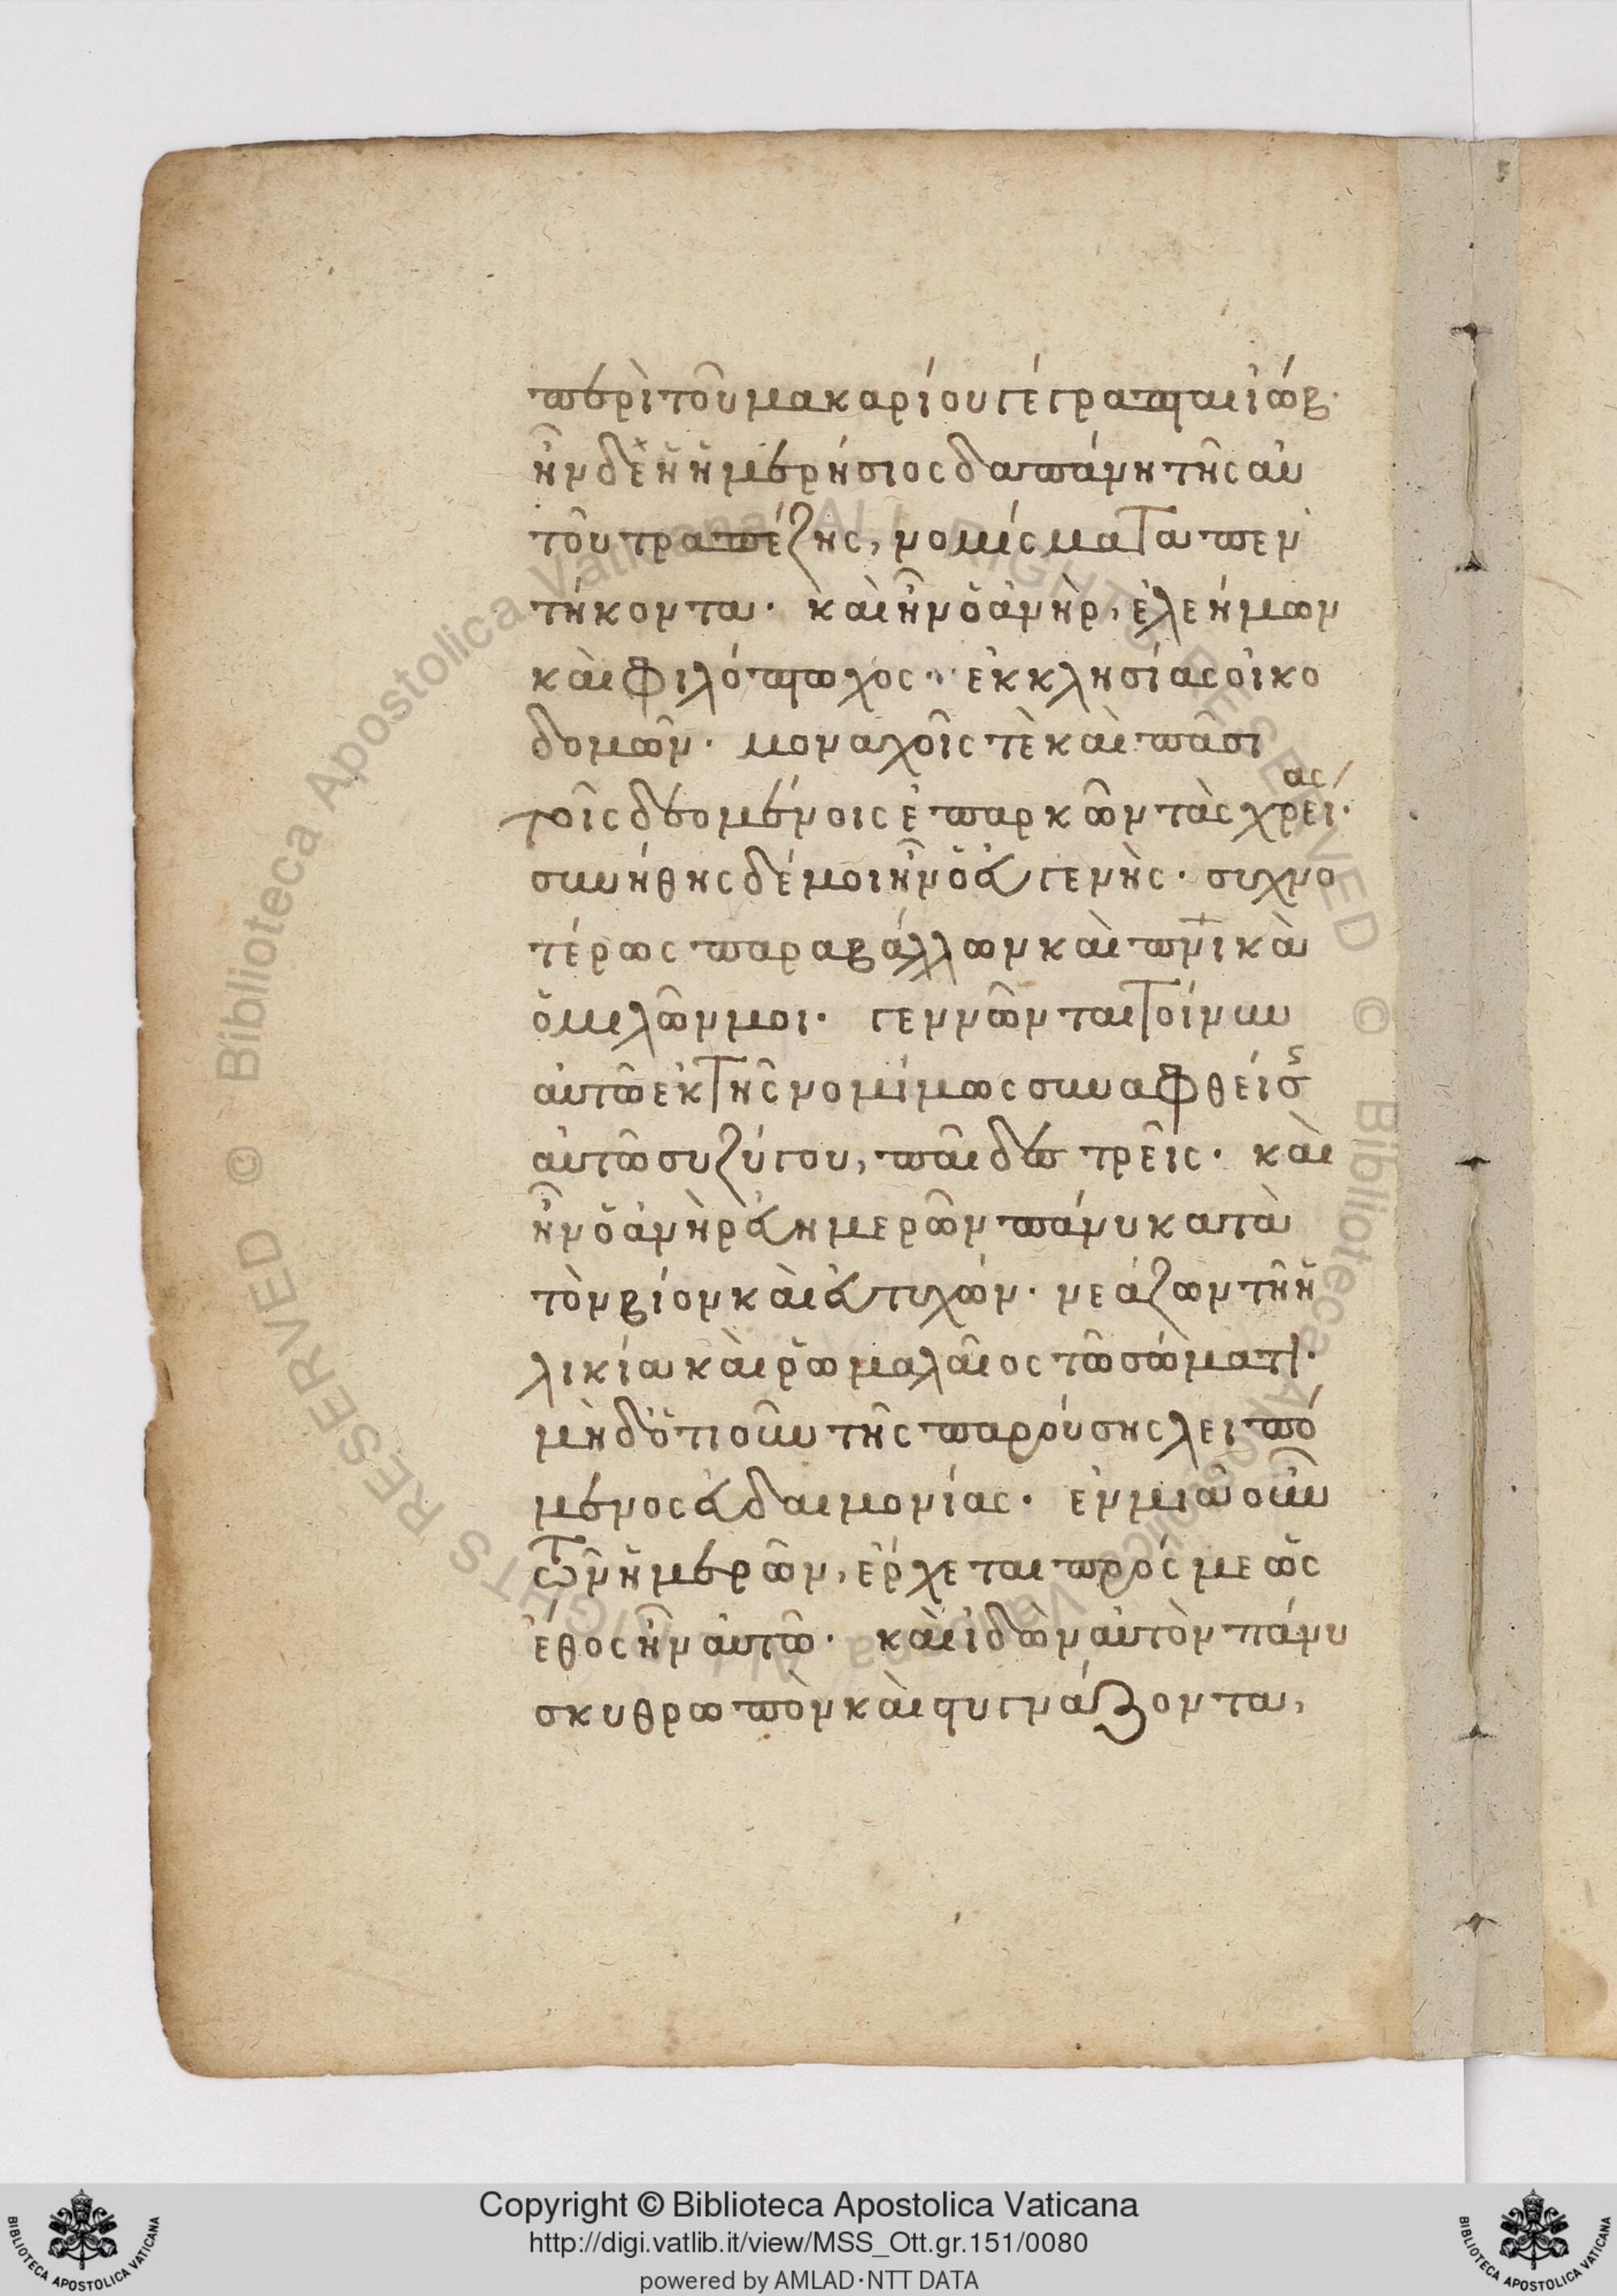 περὶ τοῦ μακαρίου γέγραπται ἰώβ·
ἦν δὲ ἡ ἡμερήσιος δαπάνη τῆς αὐ
τοῦ τραπέζης, νομίσματα πεν
τήκοντα· καὶ ἦν ὁ ἀνὴρ, ἐλεήμων
καὶ φιλόπτωχος· ἐκκλησίας οἰκο
δομῶν· μοναχοῖς τὲ καὶ πᾶσι
τοῖς δεομένοις ἐπαρκῶν τὰς χρείας·
συνήθης δέ μοι ἦν ὁ εὐγενὴς· συχνο
τέρως παραβάλλων καὶ πνικὰ
ὁμιλῶν μοι· γεννῶνται τοίνυν
αὐτῶ ἐκ τῆς νομίμως συναφθείσης
αὐτῶ συζύγου, παῖδες τρεῖς· καὶ
ἦν ὁ ἀνὴρ εὐημερῶν πάνυ κατὰ
τὸν βίον καὶ εὐτυχῶν· νεάζων τῆ ἡ
λικία καὶ ῥωμαλαῖος τῶ σώματι·
μὴδ ὁτιοῦν τῆς παρούσης λειπό
μενος εὐδαιμονίας· ἐν μιᾶ οὖν
τῶν ἡμερῶν, ἔρχεται πρός με ὡς
ἔθος ἦν αὐτῶ· καὶ ἰδὼν αὐτὸν πάνυ
σκυθρωπὸν καὶ στυγνάζοντα,
Copyright © Biblioteca Apostolica Vaticana
http://digi.vatlib.it/view/MSS_Ott.gr.151/0080
powered by AMLAD·NTT DATA
BIBLIOTECA APOSTOLICA VATICANA
BIBLIOTECA APOSTOLICA VATICANA
Biblioteca Apostolica Vaticana ALL RIGHTS RESERVED © Biblioteca Apostolica Vaticana ALL RIGHTS RESERVED ©